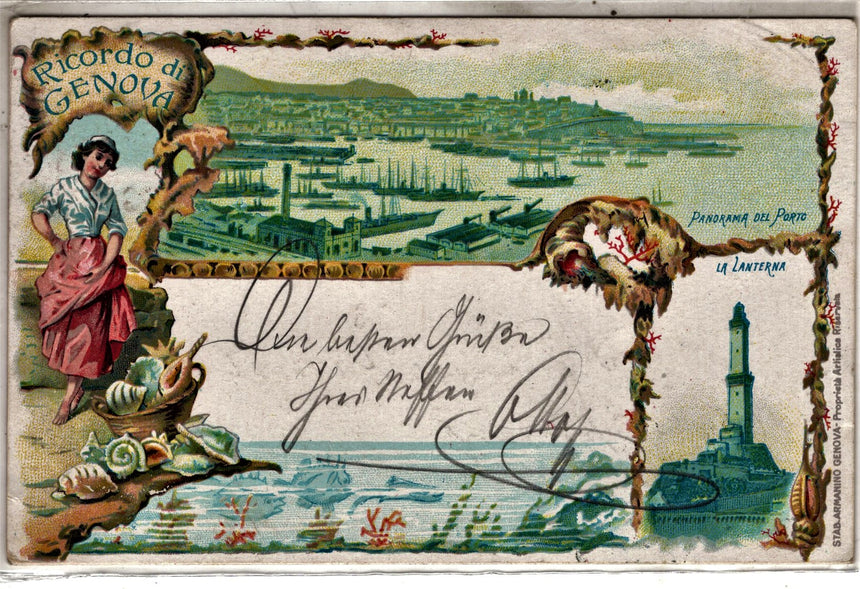 Ricordo di
GENOVA
PANORAMA DEL PORTO
LA LANTERNA
Die besten Grüße
Ihres Neffen
Otto
STAB. ARMANINO GENOVA - Proprietà Artistica Riservata